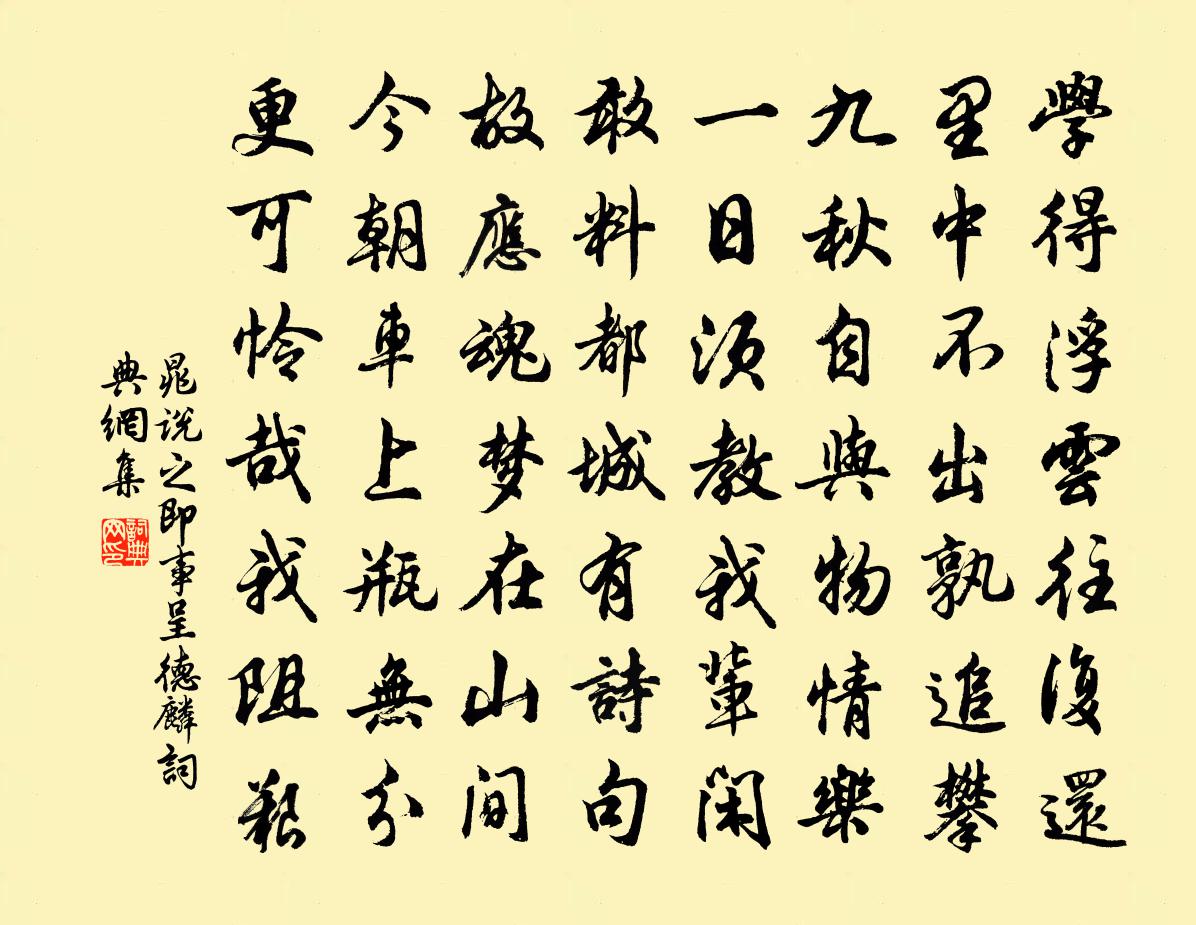 學得浮雲往復還
里中不出孰追攀
九秋自與物情樂
一日須教我輩閑
敢料都城有詩句
故應魂梦在山间
今朝車上瓶無分
更可怜哉我阻艱
晁說之即事呈德麟詞
典網集
詞典
网印